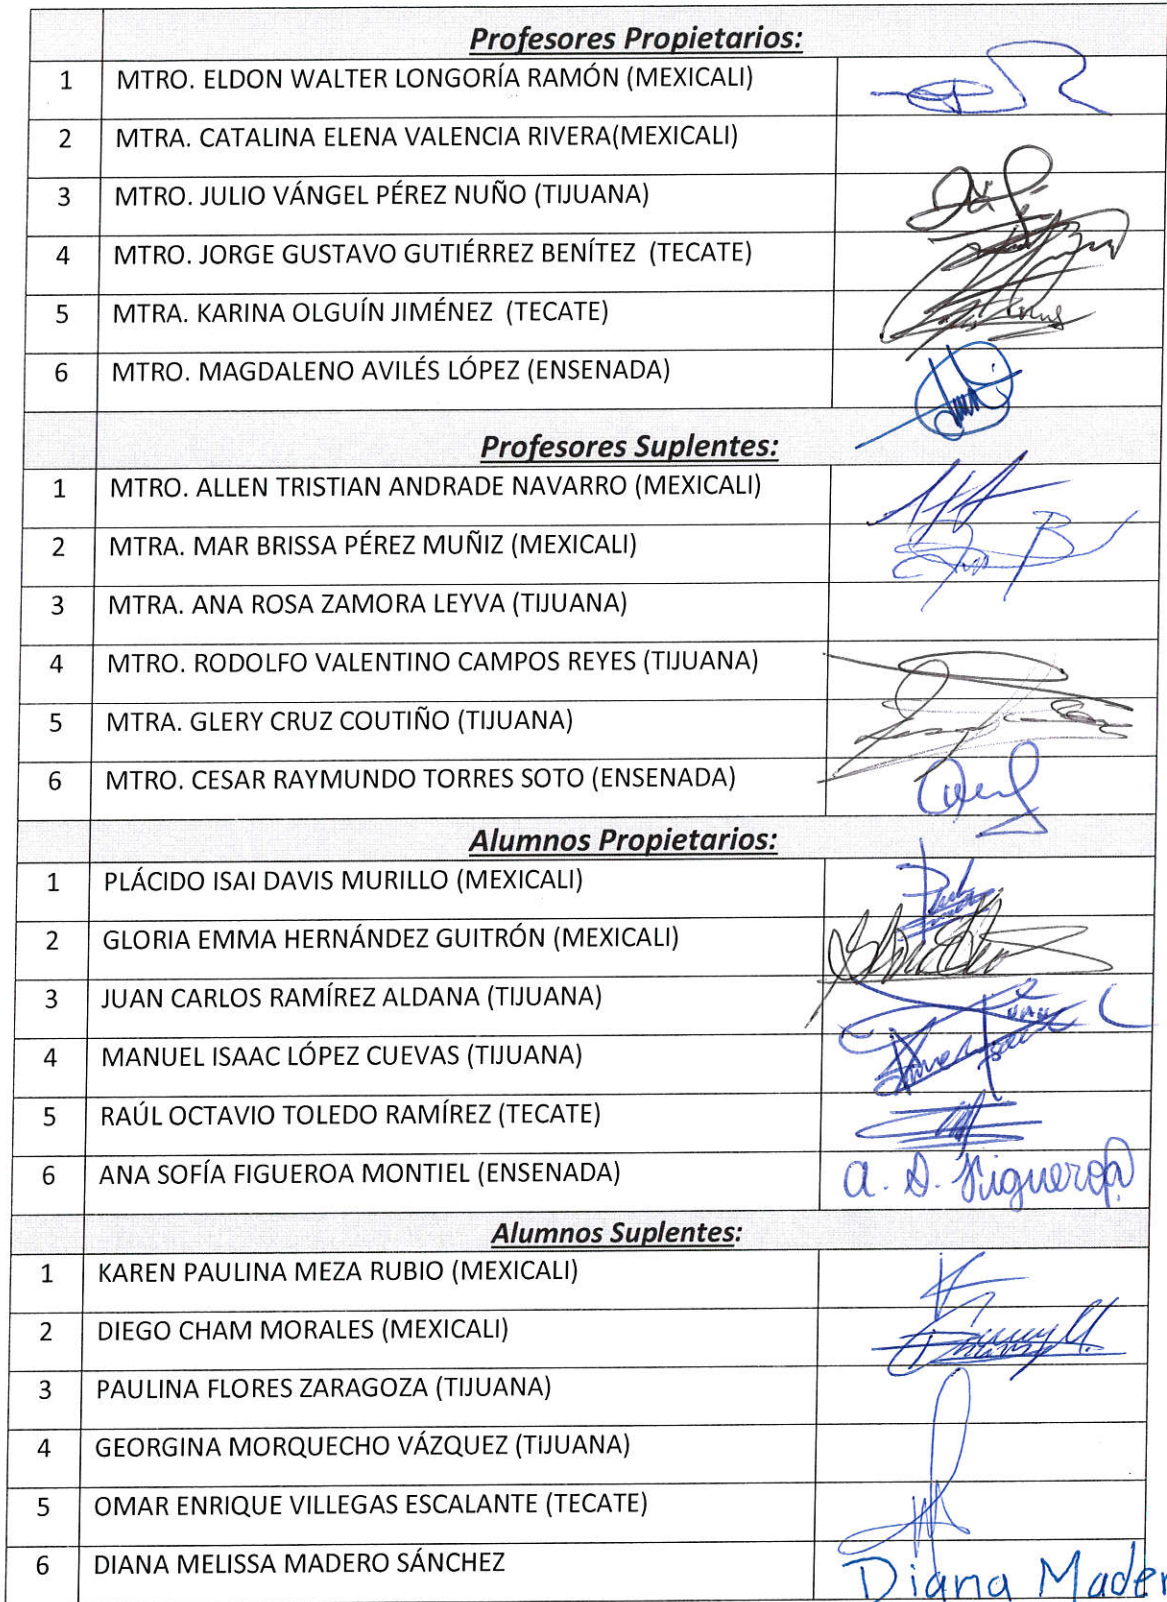 Profesores Propietarios:
1 MTRO. ELDON WALTER LONGORÍA RAMÓN (MEXICALI)
2 MTRA. CATALINA ELENA VALENCIA RIVERA(MEXICALI)
3 MTRO. JULIO VÁNGEL PÉREZ NUÑO (TIJUANA)
4 MTRO. JORGE GUSTAVO GUTIÉRREZ BENÍTEZ (TECATE)
5 MTRA. KARINA OLGUÍN JIMÉNEZ (TECATE)
6 MTRO. MAGDALENO AVILÉS LÓPEZ (ENSENADA)
Profesores Suplentes:
1 MTRO. ALLEN TRISTIAN ANDRADE NAVARRO (MEXICALI)
2 MTRA. MAR BRISSA PÉREZ MUÑIZ (MEXICALI)
3 MTRA. ANA ROSA ZAMORA LEYVA (TIJUANA)
4 MTRO. RODOLFO VALENTINO CAMPOS REYES (TIJUANA)
5 MTRA. GLERY CRUZ COUTIÑO (TIJUANA)
6 MTRO. CESAR RAYMUNDO TORRES SOTO (ENSENADA)
Alumnos Propietarios:
1 PLÁCIDO ISAI DAVIS MURILLO (MEXICALI)
2 GLORIA EMMA HERNÁNDEZ GUITRÓN (MEXICALI)
3 JUAN CARLOS RAMÍREZ ALDANA (TIJUANA)
4 MANUEL ISAAC LÓPEZ CUEVAS (TIJUANA)
5 RAÚL OCTAVIO TOLEDO RAMÍREZ (TECATE)
6 ANA SOFÍA FIGUEROA MONTIEL (ENSENADA) a. S. Figueroa
Alumnos Suplentes:
1 KAREN PAULINA MEZA RUBIO (MEXICALI)
2 DIEGO CHAM MORALES (MEXICALI)
3 PAULINA FLORES ZARAGOZA (TIJUANA)
4 GEORGINA MORQUECHO VÁZQUEZ (TIJUANA)
5 OMAR ENRIQUE VILLEGAS ESCALANTE (TECATE)
6 DIANA MELISSA MADERO SÁNCHEZ Diana Mader